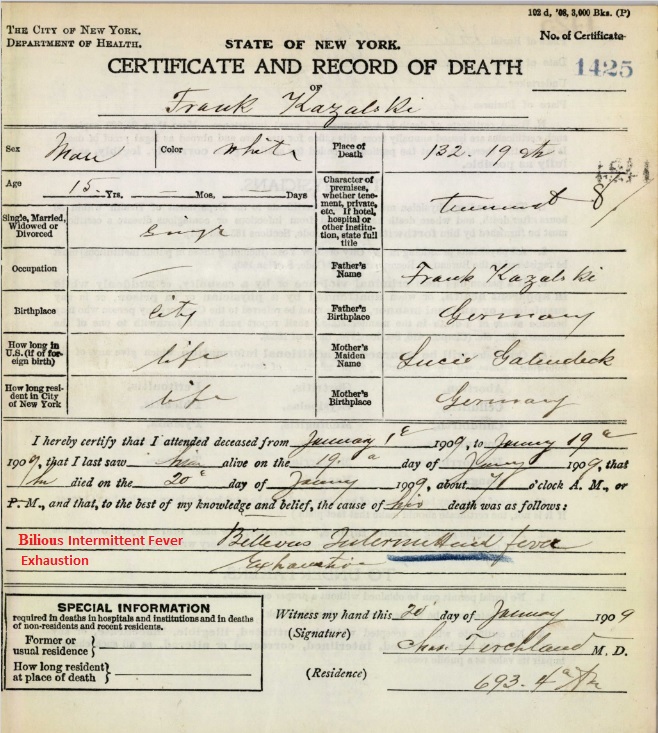 102 d, '08, 3,000 Bks. (P)
THE CITY OF NEW YORK.
DEPARTMENT OF HEALTH.
No. of Certificate
STATE OF NEW YORK.
CERTIFICATE AND RECORD OF DEATH
1425
OF
Frank Kazalski
Sex
Male
Color
White
Place of Death
132. 19 
Age
15 Yrs. — Mos. Days
Character of premises, whether tenement, private, etc. If hotel, hospital or other institution, state full title
tenement 8
Single, Married, Widowed or Divorced
Single
Occupation
—
Father's Name
Frank Kazalski
Birthplace
City
Father's Birthplace
Germany
How long in U.S. (if of foreign birth)
life
Mother's Maiden Name
Lucie
How long resident in City of New York
life
Mother's Birthplace
Germany
I hereby certify that I attended deceased from January 1 1909, to January 19
1909, that I last saw him alive on the 19 day of January 1909, that
he died on the 20 day of January 1909, about 7 o'clock A. M., or
P. M., and that, to the best of my knowledge and belief, the cause of his death was as follows:
Bilious Intermittent Fever
Billious Intermittent fever
Exhaustion
Exhaustion
SPECIAL INFORMATION
required in deaths in hospitals and institutions and in deaths
of non-residents and recent residents.
Former or usual residence }
How long resident at place of death }
Witness my hand this 20 day of January 1909
(Signature) Chas. Ferchland M. D.
(Residence) 693. 4